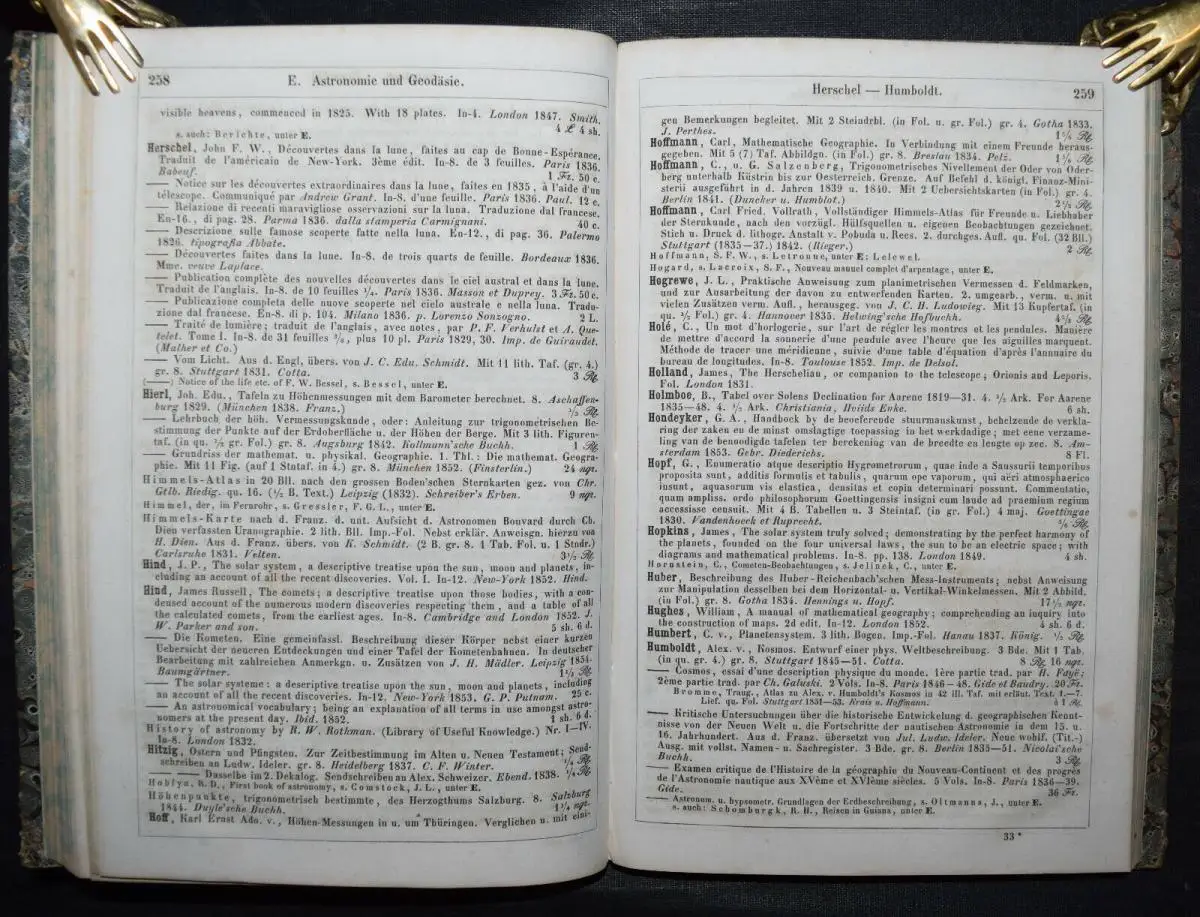 258 E. Astronomie und Geodäsie.
visible heavens, commenced in 1825. With 18 plates. In-4. London 1847. Smith.
4 £ 4 sh.
s. auch: Berichte, unter E.
Herschel, John F. W., Découvertes dans la lune, faites au cap de Bonne-Espérance.
Traduit de l'américain de New-York. 3ème édit. In-8. de 3 feuilles. Paris 1836.
Babeuf. 1 Fr. 50 c.
—— Notice sur les découvertes extraordinaires dans la lune, faites en 1835, à l'aide d'un
télescope. Communiqué par Andrew Grant. In-8. d'une feuille. Paris 1836. Paul. 12 c.
—— Relazione di recenti maravigliose osservazioni sulla luna. Traduzione dal francese.
En-16., di pag. 28. Parma 1836. dalla stamperia Carmignani. 40 c.
—— Descrizione sulle famose scoperte fatte nella luna. En-12., di pag. 36. Palermo
1826. tipografia Abbate.
—— Découvertes faites dans la lune. In-8. de trois quarts de feuille. Bordeaux 1836.
Mme. veuve Laplace.
—— Publication complète des nouvelles découvertes dans le ciel austral et dans la lune.
Traduit de l'anglais. In-8. de 10 feuilles ¼. Paris 1836. Masson et Duprey. 3 Fr. 50 c.
—— Publicazione completa delle nuove scoperte nel cielo australe e nella luna. Tradu-
zione dal francese. En-8. di p. 104. Milano 1836. p. Lorenzo Sonzogno. 2 L.
—— Traité de lumière; traduit de l'anglais, avec notes, par P. F. Verhulst et A. Que-
telet. Tome I. In-8. de 31 feuilles ³/₈, plus 10 pl. Paris 1829, 30. Imp. de Guiraudet.
(Malher et Co.)
—— Vom Licht. Aus d. Engl, übers. von J. C. Edu. Schmidt. Mit 11 lith. Taf. (gr. 4.)
gr. 8. Stuttgart 1831. Cotta. 3 Rt.
(——) Notice of the life etc. of F. W. Bessel, s. Bessel, unter E.
Hierl, Joh. Edu., Tafeln zu Höhenmessungen mit dem Barometer berechnet. 8. Aschaffen-
burg 1829. (München 1838. Franz.) ⅓ Rt.
—— Lehrbuch der höh. Vermessungskunde, oder: Anleitung zur trigonometrischen Be-
stimmung der Punkte auf der Erdoberfläche u. der Höhen der Berge. Mit 3 lith. Figuren-
taf. (in qu. ½ gr. Fol.) gr. 8. Augsburg 1842. Kollmann'sche Buchh. 1 Rt.
—— Grundriss der mathemat. u. physikal. Geographie. 1. Thl.: Die mathemat. Geogra-
phie. Mit 11 Fig. (auf 1 Stntaf. in 4.) gr. 8. München 1852. (Finsterlin.) 24 ngr.
Himmels-Atlas in 20 Bll. nach den grossen Boden'schen Sternkarten gez. von Chr.
Gtlb. Riedig. qu. 16. (½ B. Text.) Leipzig (1832). Schreiber's Erben. 9 ngr.
Himmel, der, im Fernrohr, s. Gressler, F. G. L., unter E.
Himmels-Karte nach d. Franz. d. unt. Aufsicht d. Astronomen Bouvard durch Ch.
Dien verfassten Uranographie. 2 lith. Bll. Imp.-Fol. Nebst erklär. Anweisgn. hierzu von
H. Dien. Aus d. Franz. übers. von K. Schmidt. (2 B. gr. 8. 1 Tab. Fol. u. 1 Stndr.)
Carlsruhe 1831. Velten. 3½ Rt.
Hind, J. P., The solar system, a descriptive treatise upon the sun, moon and planets, in-
cluding an account of all the recent discoveries. Vol. I. In-12. New-York 1852. Hind.
Hind, James Russell, The comets; a descriptive treatise upon those bodies, with a con-
densed account of the numerous modern discoveries respecting them, and a table of all
the calculated comets, from the earliest ages. In-8. Cambridge and London 1852. J.
W. Parker and son. 5 sh. 6 d.
—— Die Kometen. Eine gemeinfassl. Beschreibung dieser Körper nebst einer kurzen
Uebersicht der neueren Entdeckungen und einer Tafel der Kometenbahnen. In deutscher
Bearbeitung mit zahlreichen Anmerkgn. u. Zusätzen von J. H. Mädler. Leipzig 1854.
Baumgärtner. 1⅓ Rt.
—— The solar systeme: a descriptive treatise upon the sun, moon and planets, including
an account of all the recent discoveries. In-12. New-York 1853. G. P. Putnam. 25 c.
—— An astronomical vocabulary; being an explanation of all terms in use amongst astro-
nomers at the present day. Ibid. 1852. 1 sh. 6 d.
History of astronomy by R. W. Rothman. (Library of Useful Knowledge.) Nr. I—IV.
In-8. London 1832.
Hitzig, Ostern und Pfingsten. Zur Zeitbestimmung im Alten u. Neuen Testament; Send-
schreiben an Ludw. Ideler. gr. 8. Heidelberg 1837. C. F. Winter. ¼ Rt.
—— —— Dasselbe im 2. Dekalog. Sendschreiben an Alex. Schweizer. Ebend. 1838. ¼ Rt.
Hoblyn, R. D., First book of astronomy, s. Comstock, J. L., unter E.
Höhenpunkte, trigonometrisch bestimmte, des Herzogthums Salzburg. 8. Salzburg
1844. Duyle'sche Buchh. 1¼ ngr.
Hoff, Karl Ernst Ado. v., Höhen-Messungen in u. um Thüringen. Verglichen u. mit eini-
Herschel — Humboldt. 259
gen Bemerkungen begleitet. Mit 2 Steindrbl. (in Fol. u. gr. Fol.) gr. 4. Gotha 1833.
J. Perthes. 1¼ Rt.
Hoffmann, Carl, Mathematische Geographie. In Verbindung mit einem Freunde heraus-
gegeben. Mit 5 (7) Taf. Abbildgn. (in Fol.) gr. 8. Breslau 1834. Pelz. 1⅙ Rt.
Hoffmann, C., u. G. Salzenberg, Trigonometrisches Nivellement der Oder von Oder-
berg unterhalb Küstrin bis zur Oesterreich. Grenze. Auf Befehl d. königl. Finanz-Mini-
sterii ausgeführt in d. Jahren 1839 u. 1840. Mit 2 Uebersichtskarten (in Fol.) gr. 4.
Berlin 1841. (Duncker u. Humblot.) 2⅔ Rt.
Hoffmann, Carl Fried. Vollrath, Vollständiger Himmels-Atlas für Freunde u. Liebhaber
der Sternkunde, nach den vorzügl. Hülfsquellen u. eigenen Beobachtungen gezeichnet.
Stich u. Druck d. lithogr. Anstalt v. Pobuda u. Rees. 2. durchges. Aufl. qu. Fol. (32 Bll.)
Stuttgart (1835—37.) 1842. (Rieger.) 2 Rt.
Hoffmann, S. F. W., s. Letronne, unter E: Lelewel.
Hogard, s. Lacroix, S. F., Nouveau manuel complet d'arpentage, unter E.
Hogrewe, J. L., Praktische Anweisung zum planimetrischen Vermessen d. Feldmarken,
und zur Ausarbeitung der davon zu entwerfenden Karten. 2. umgearb., verm. u. mit
vielen Zusätzen verm. Aufl., herausgeg. von J. C. H. Ludowieg. Mit 13 Kupfertaf. (in
qu. ½ Fol.) gr. 4. Hannover 1835. Helwing'sche Hofbuchh. 4⅔ Rt.
Holé, C., Un mot d'horlogerie, sur l'art de régler les montres et les pendules. Manière
de mettre d'accord la sonnerie d'une pendule avec l'heure que les aiguilles marquent.
Méthode de tracer une méridienne, suivie d'une table d'équation d'après l'annuaire du
bureau de longitudes. In-8. Toulouse 1852. Imp. de Delsol.
Holland, James, The Herschelian, or companion to the telescope; Orionis and Leporis.
Fol. London 1831.
Holmboe, B., Tabel over Solens Declination for Aarene 1819—31. 4. ½ Ark. For Aarene
1835—48. 4. ½ Ark. Christiania, Hviids Enke. 6 sh.
Hondeyker, G. A., Handboek by de broeferende stuurmanskunst, behelzende de verkla-
ring der zaken en de minst omslagtige toepassing in het werkdadige; met eene verzame-
ling van de benoodigde tafelen ter berekening van de breedte en lengte op zee. 8. Am-
sterdam 1853. Gebr. Diederichs. 8 Fl.
Hopf, G., Enumeratio atque descriptio Hygrometrorum, quae inde a Saussurii temporibus
proposita sunt, additis formulis et tabulis, quarum ope vaporum, qui aëri atmosphaerico
insunt, aquosorum vis elastica, densitas et copia determinari possunt. Commentatio,
quam ampliss. ordo philosophorum Goettingensis insigni cum laude ad praemium regium
accessisse censuit. Mit 4 B. Tabellen u. 3 Steintaf. (in gr. Fol.) 4 maj. Goettingae
1830. Vandenhoeck et Ruprecht. ⅚ Rt.
Hopkins, James, The solar system truly solved; demonstrating by the perfect harmony of
the planets, founded on the four universal laws, the sun to be an electric space; with
diagrams and mathematical problems. In-8. pp. 138. London 1849. 4 sh.
Hornstein, C., Cometen-Beobachtungen, s. Jelinek, C., unter E.
Huber, Beschreibung des Huber-Reichenbach'schen Mess-Instruments; nebst Anweisung
zur Manipulation desselben bei dem Horizontal- u. Vertikal-Winkelmessen. Mit 2 Abbild.
(in Fol.) gr. 8. Gotha 1834. Hennings u. Hopf. 17½ ngr.
Hughes, William, A manual of mathematical geography; comprehending an inquiry into
the construction of maps. 2d edit. In-12. London 1852. 4 sh. 6 d.
Humbert, C. v., Planetensystem. 3 lith. Bogen. Imp.-Fol. Hanau 1837. König. ½ Rt.
Humboldt, Alex. v., Kosmos. Entwurf einer phys. Weltbeschreibung. 3 Bde. Mit 1 Tab.
(in qu. gr. 4.) gr. 8. Stuttgart 1845—51. Cotta. 8 Rt. 16 ngr.
—— Cosmos, essai d'une description physique du monde. 1ère partie trad. par H. Faye;
2ème partie trad. par Ch. Galuski. 2 Vols. In-8. Paris 1846—48. Gide et Baudry. 20 Fr.
Bromme, Traug., Atlas zu Alex. v. Humboldt's Kosmos in 42 ill. Taf. mit erläut. Text. 1.—7.
Lief. qu. Fol. Stuttgart 1851—53. Krais u. Hoffmann. à 1 Rt.
—— Kritische Untersuchungen über die historische Entwickelung d. geographischen Kennt-
nisse von der Neuen Welt u. die Fortschritte der nautischen Astronomie in dem 15. u.
16. Jahrhundert. Aus d. Franz. übersetzt von Jul. Ludw. Ideler. Neue wohlf. (Tit.-)
Ausg. mit vollst. Namen- u. Sachregister. 3 Bde. gr. 8. Berlin 1835—51. Nicolai'sche
Buchh. 3 Rt.
—— Examen critique de l'Histoire de la géographie du Nouveau-Continent et des progrès
de l'Astronomie nautique aux XVème et XVIème siècles. 5 Vols. In-8. Paris 1836—39.
Gide. 36 Fr.
—— Astronom. u. hypsometr. Grundlagen der Erdbeschreibung, s. Oltmanns, J., unter E.
s. auch: Schomburgk, R. H., Reisen in Guiana, unter E.
33 *